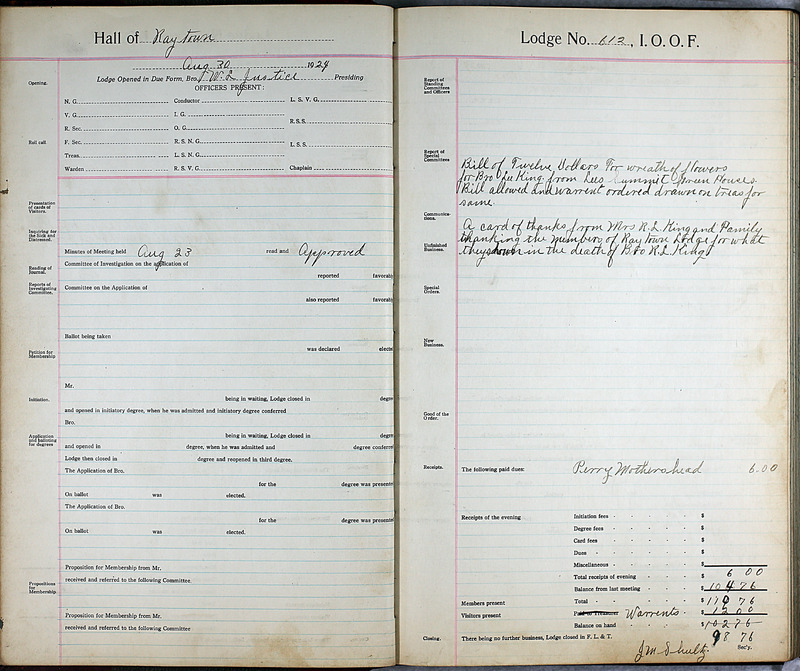 Hall of Raytown
Aug 30 1924
Lodge Opened in Due Form, Bro. W. L. Justice Presiding
Opening.
OFFICERS PRESENT:
N. G. Conductor L. S. V. G.
V. G. I. G. R.S.S.
R. Sec. O. G.
Roll call
F. Sec. R. S. N. G. L. S. S.
Treas. L. S. N. G.
Warden R. S. V. G. Chaplain
Presentation of cards of Visitors.
Inquiring for the Sick and Distressed.
Minutes of Meeting held Aug 23 read and Approved
Reading of Journal.
Committee of Investigation on the application of
reported favorab
Reports of Investigating Committee.
Committee on the Application of
also reported favorab
Ballot being taken
was declared elected
Petition for Membership
Mr.
Initiation.
being in waiting, Lodge closed in degre
and opened in initiatory degree, when he was admitted and initiatory degree conferred
Bro.
Application and balloting for degrees
being in waiting, Lodge closed in degre
and opened in degree, when he was admitted and degree conferre
Lodge then closed in degree and reopened in third degree.
The Application of Bro.
for the degree was presente
On ballot was elected.
The Application of Bro.
for the degree was presente
On ballot was elected.
Proposition for Membership from Mr.
received and referred to the following Committee.
Propositions for Membership.
Proposition for Membership from Mr.
received and referred to the following Committee
Lodge No. 612, I. O. O. F.
Report of Standing Committees and Officers
Report of Special Committees
Bill of Twelve Dollars For wreath of flowers
for Bro Lee King from Lees Summit Green House.
Bill allowed and warrent ordered drawn on treas for
same.
Communications.
A card of thanks from Mrs R. L. King and Family
thanking the members of Raytown Lodge for what
Unfinished Business.
they shown in the death of Bro R. L. King
Special Orders.
New Business.
Good of the Order.
Receipts.
The following paid dues: Perry Mothershead 6.00
Receipts of the evening Initiation fees $
Degree fees $
Card fees $
Dues $
Miscellaneous $
Total receipts of evening $ 6 00
Balance from last meeting $ 104 76
Members present Total $ 110 76
Visitors present Paid to Treasurer Warrents $ 12 00
Balance on hand $ 102 76
98 76
Closing.
There being no further business, Lodge closed in F. L. & T.
J M Shultz Sec'y.